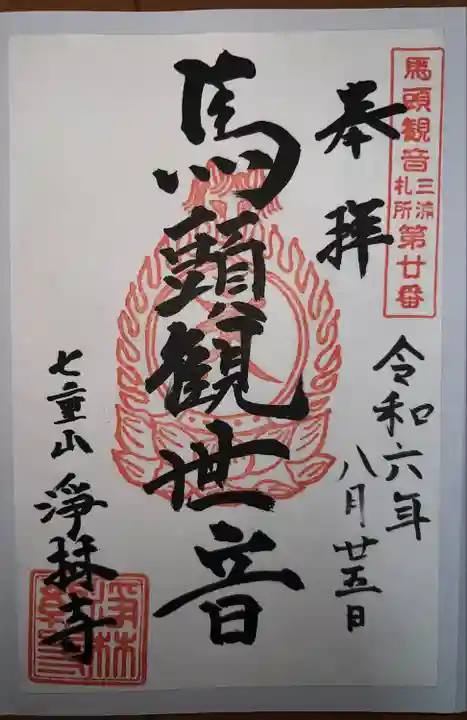 馬頭観音
三浦
札所
第廿番
奉拝
令和六年
八月廿五日
馬頭観世音
七重山
淨林寺